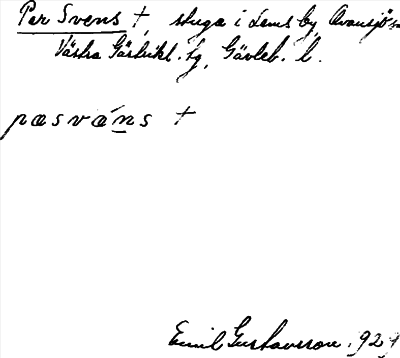 Per Svens †, stuga i Lems by, Ovansjö sn
Västra Gästrikl. tg, Gävleb. l.
pæsvǽns †
Emil Gustavsson. 929